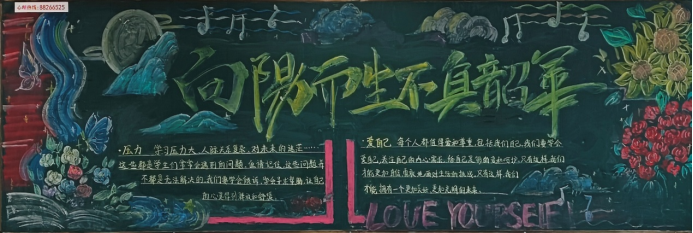 心理热线:88266525
向陽而生不負韶華
·压力 学习压力大、人际关系复杂、对未来的迷茫……
这些都是学生们常常会遇到的问题,但请记住,这些问题并
不都是无法解决的,我们要学会倾诉,学会寻求帮助,让自己
的心灵得到释放和舒缓。
·爱自己 每个人都值得爱和尊重,包括我们自己,我们要学会
爱自己,关注自己的内心需求,给自己足够的关爱和呵护,只有这样,我们
才能更加自信,勇敢地面对生活的挑战,只有这样,我们
才能拥有一个更加美好、更加光辉的未来。
LOVE YOURSELF!